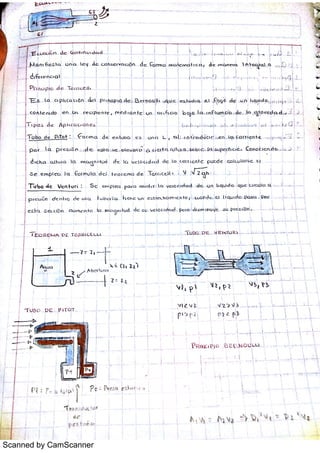 Ecuación de Continuidad
Manifiesta una ley de conservación de forma matematica, de manera Integral o
diferencial
Principio de Torricelli
Es la aplicación del principio de Bernoulli que estudia el flujo de un liquido
contenido en un recipiente, mediante un orificio bajo la influencia de la gravedad.
Tipos de Aplicaciones
Tubo de Pitot: Forma de estudio es una L, al introducir en la corriente
por la presión de esta se elevará a cierta altura sobre la superficie. Conociendo
dicha altura la magnitud de la velocidad de la corriente puede calcularse si
Se emplea la formula del teorema de Torricelli: V √2gh
Tubo de Venturi: Se emplea para medir la velocidad de un liquido que circula a
presión dentro de una tuberia. tiene un estrechamiento, cuando el liquido pasa por
esta sección aumenta la magnitud de su velocidad pero disminuye su presión.
TEOREMA DE TORRICELLI
TUBO DE VENTURI
1
Agua
Abertura
2
V1, P1 V2, P2 V3, P3
V1<V2 V2>V3
P1>P2 P2<P3
TUBO DE PITOT
PRINCIPIO BERNOULLI
Pt Ps
Transductor
de
presión
A1V1 = A2V2 ⇒ D1²V1 = D2²V2
Scanned by CamScanner